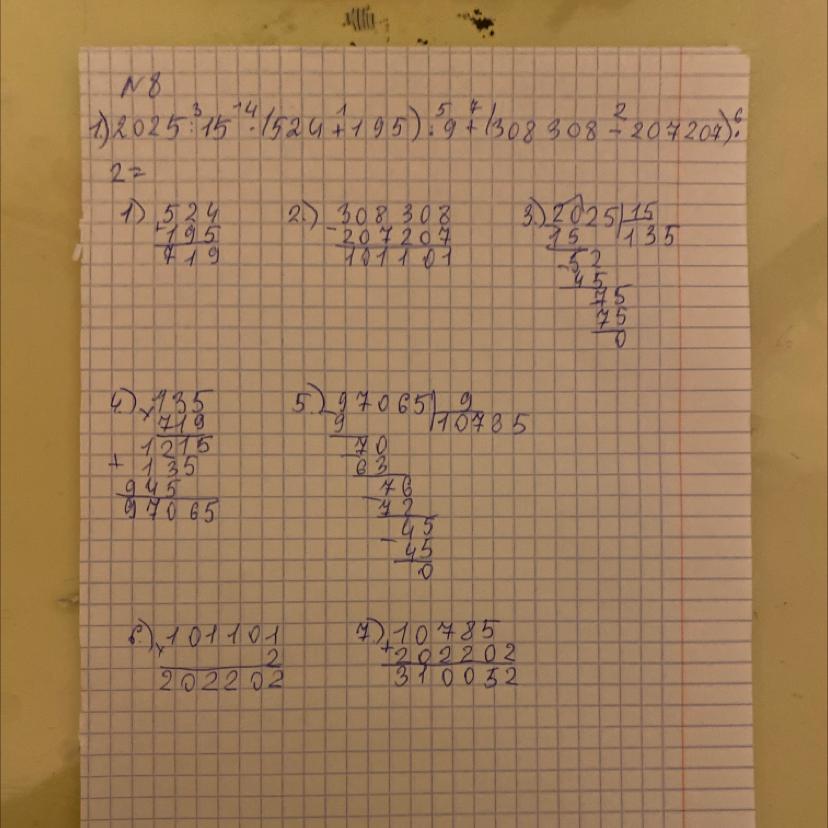 N8
1.) 2025 : 15 · (524 + 195) : 9 + (308 308 − 207207) ·
2 =
1.) 524
+ 195
719
2.) 308 308
− 207 207
101101
3.) 2025 | 15
15 135
− 52
45
75
75
0
4.) × 135
719
1215
+ 135
945
97065
5.) 97065 | 9
9 10785
70
63
− 76
72
− 45
45
0
6.) × 101101
2
202202
7.) 10785
+ 202202
310052